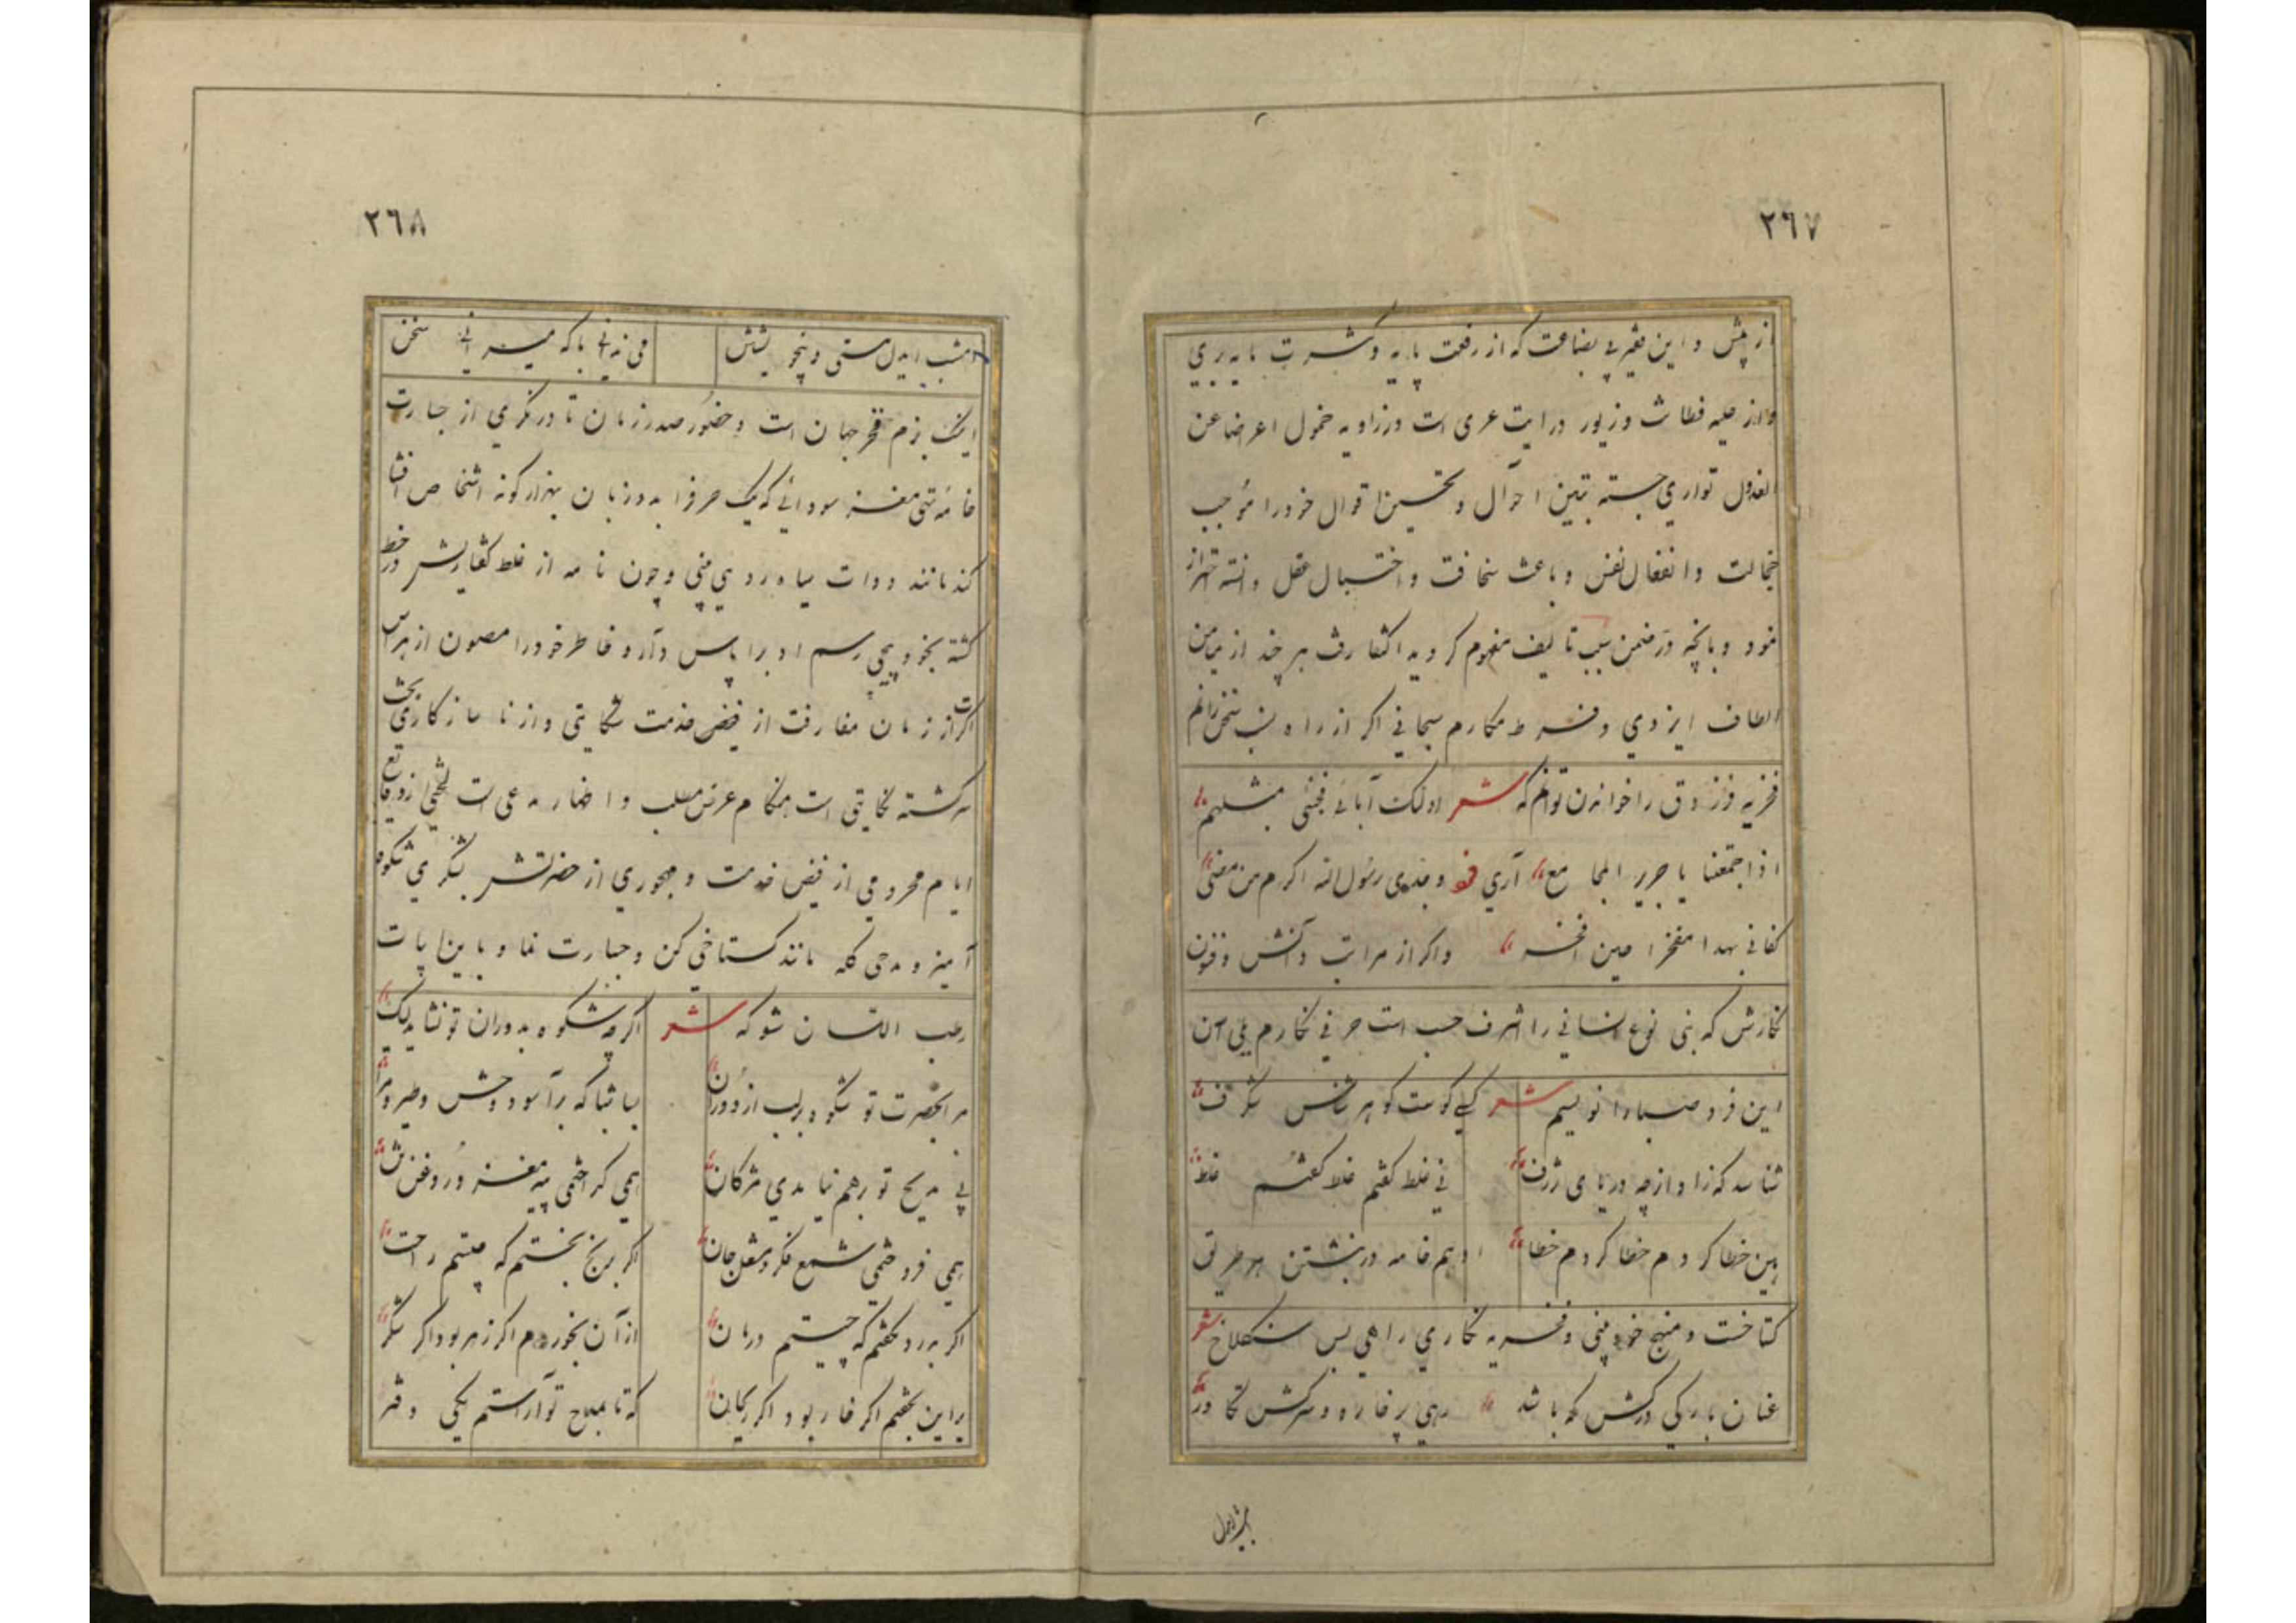 ٢٦٧
از پیش و این فقیر بی بضاعت که از رفعت پایه و کثرت مایه بری
و از حلیه فطانت و زیور درایت عری است در زاویه خمول اعراضا عن
العذول تواری جسته تبیین احوال و تحسین اقوال خود را موجب
خجالت و انفعال نفس و باعث سخافت و اختبال عقل دانسته احتراز
نمود و بانچه در ضمن سبب تالیف مفهوم گردید اکتفا رفت هر چند از میامن
الطاف ایزدی و فرط مکارم سبحانی اگر از راه نسب سخن رانم
فخریه فرزدق را خواندن توانم که شعر اولئک آبائی فجئنی بمثلهم
اذا جمعتنا یا جریر المجامع آری و جدی رسول الله اکرم من مشی
کفانی بهذا مفخرا حین افخر و اگر از مراتب دانش و فنون
نگارش که بنی نوع انسانی را شرف حسب است حرفی نگارم بلی آن
این فرد صباد را نویسم شعر کسی کوست گوهر شناس شگرف
شناسد که زاد از چه دریای ژرف نی غلط گفتم غلط گفتم غلط
هین خطا کردم خطا کردم خطا ادهم خامه در نبشتن هر طریق
گتاخست و منهج خودبینی و فخریه نگاری راهی بس سنگلاخ شعر
عنان بارکی درکش که باشد رهی پر خاره و سرکش تکاور
٢٦٨
امشب ایدل مستی و بیخویشتن می ندانی با که میرانی سخن
اینک بزم فخر جهان است و حضور صدر زمان تا در نگری از جسارت
خامه تهی مغز سودائی که یک حرف را به دو زبان بهزار گونه اشخاص افشا
کند مانند دوات سیاه رو بینی و چون نامه از غلط گفتاریش در خط
گشته بخود پیچی رسم ادب را پاس دار و خاطر خود را مصون از هراس
اگر از زمان مفارقت از فیض خدمت شکایتی و از ناسازکاری بخت
سرگشته حکایتی است هنگام عرض مطلب و اظهار مدعی است لختی از وقایع
ایام محرومی از فیض خدمت و مهجوری از حضرتش بشکری شکوه
آمیز و مدحی گله مانند گستاخی کن و جسارت نما و باین ابیات
رطب اللسان شو که شعر اگرچه شکوه بدوران تو نشاید لیک
مرا بحضرت تو شکوه بر لب از دوران بسا شبا که بر آسود وحش و طیر و مرا
پی مدیح تو برهم نیامدی مژگان همی گداختمی پیه مغز و روغن
همی فروختمی شمع فکر و مشعل جان اگر برنج بخستم که چیستم راحت
اگر بدرد بخفتم که چیستم درمان از آن بخوردم اگر زهر بود اگر شکر
براین بخفتم اگر خار بود اگر ریحان که تا بمدح تو آراستم یکی دفتر